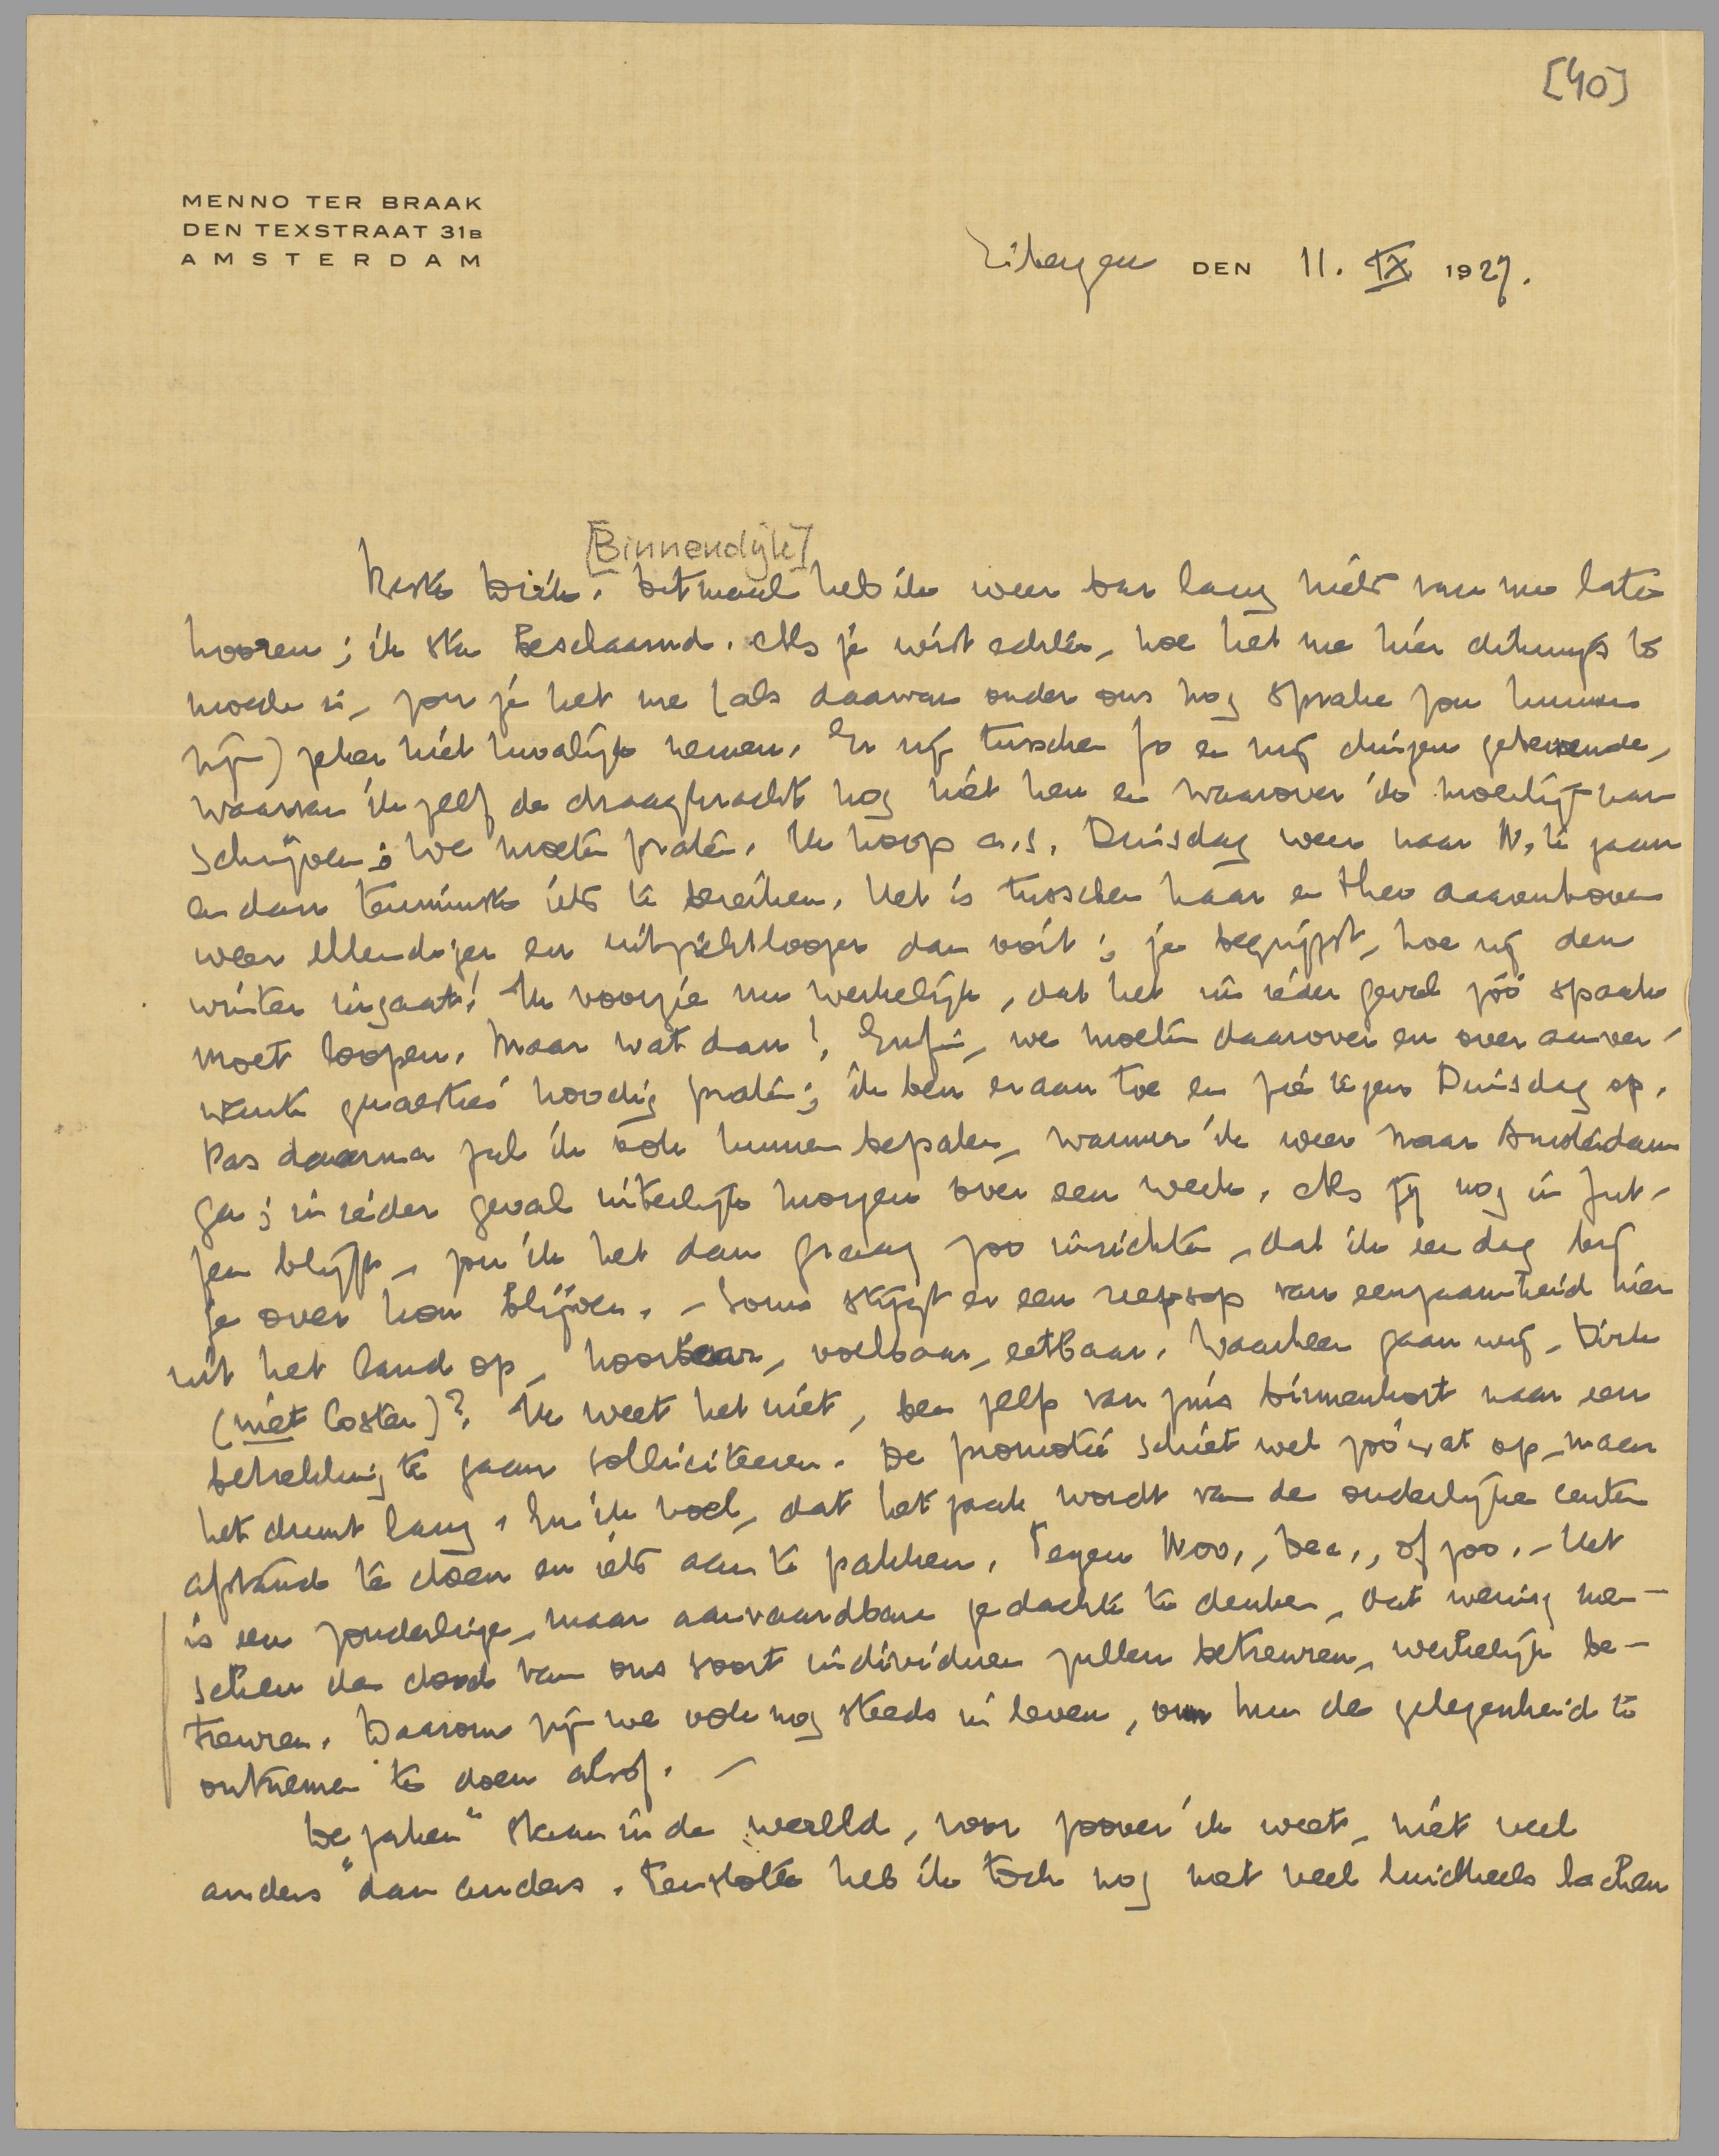 [40]
MENNO TER BRAAK
DEN TEXSTRAAT 31B
AMSTERDAM
Eibergen DEN 11. IX 1927.
[Binnendijk]
Beste Dirk. Ditmaal heb ik weer bar lang niets van me laten
hooren; ik sta beschaamd. Als je wist echter, hoe het me hier dikwijls te
moede is, zou je het me (als daarvan onder ons nog sprake zou kunnen
zijn) zeker niet kwalijk nemen. Er zijn tusschen Jo en mij dingen gebeurende,
waarvan ik zelf de draagkracht nog niet ken en waarover ik moeilijk kan
schrijven; we moeten praten. Ik hoop a.s. Dinsdag weer naar W. te gaan
en dan tenminste iets te bereiken. Het is tusschen haar en Theo daarenboven
weer ellendiger en uitzichtloozer dan ooit; je begrijpt, hoe zij den
winter ingaat! Ik voorzie nu werkelijk, dat het in ieder geval zóó spaak
moet loopen. Maar wat dan! Enfin, we moeten daarover en over aanver-
wante quaesties noodig praten; ik ben eraan toe en zie tegen Dinsdag op.
Pas daarna zal ik ook kunnen bepalen, wanneer ik weer naar Amsterdam
ga; in ieder geval uiterlijk morgen over een week. Als jij nog in Zut-
fen blijft, zou ik het dan graag zoo inrichten, dat ik een dag bij
je over kon blijven. – Soms stijgt er een zeepsop van eenzaamheid hier
uit het land op, hoorbaar, voelbaar, eetbaar. Waarheen gaan wij, Dirk
(niet Coster)? Ik weet het niet, ben zelf van zins binnenkort naar een
betrekking te gaan solliciteeren. De promotie schiet wel zóó wat op, maar
het duurt lang. En ik voel, dat het zaak wordt van de ouderlijke centen
afstand te doen en iets aan te pakken. Tegen Nov., Dec., of zoo. – Het
is een zonderlinge, maar aanvaardbare gedachte te denken, dat weinig men-
schen den dood van ons soort individuen zullen betreuren, werkelijk be-
treuren. Daarom zijn we ook nog steeds in leven, om hun de gelegenheid te
ontnemen te doen alsof. –
De „zaken" staan in de wereld, voor zoover ik weet, niet veel
anders dan anders. Tenslotte heb ik toch nog met veel luidkeels lachen